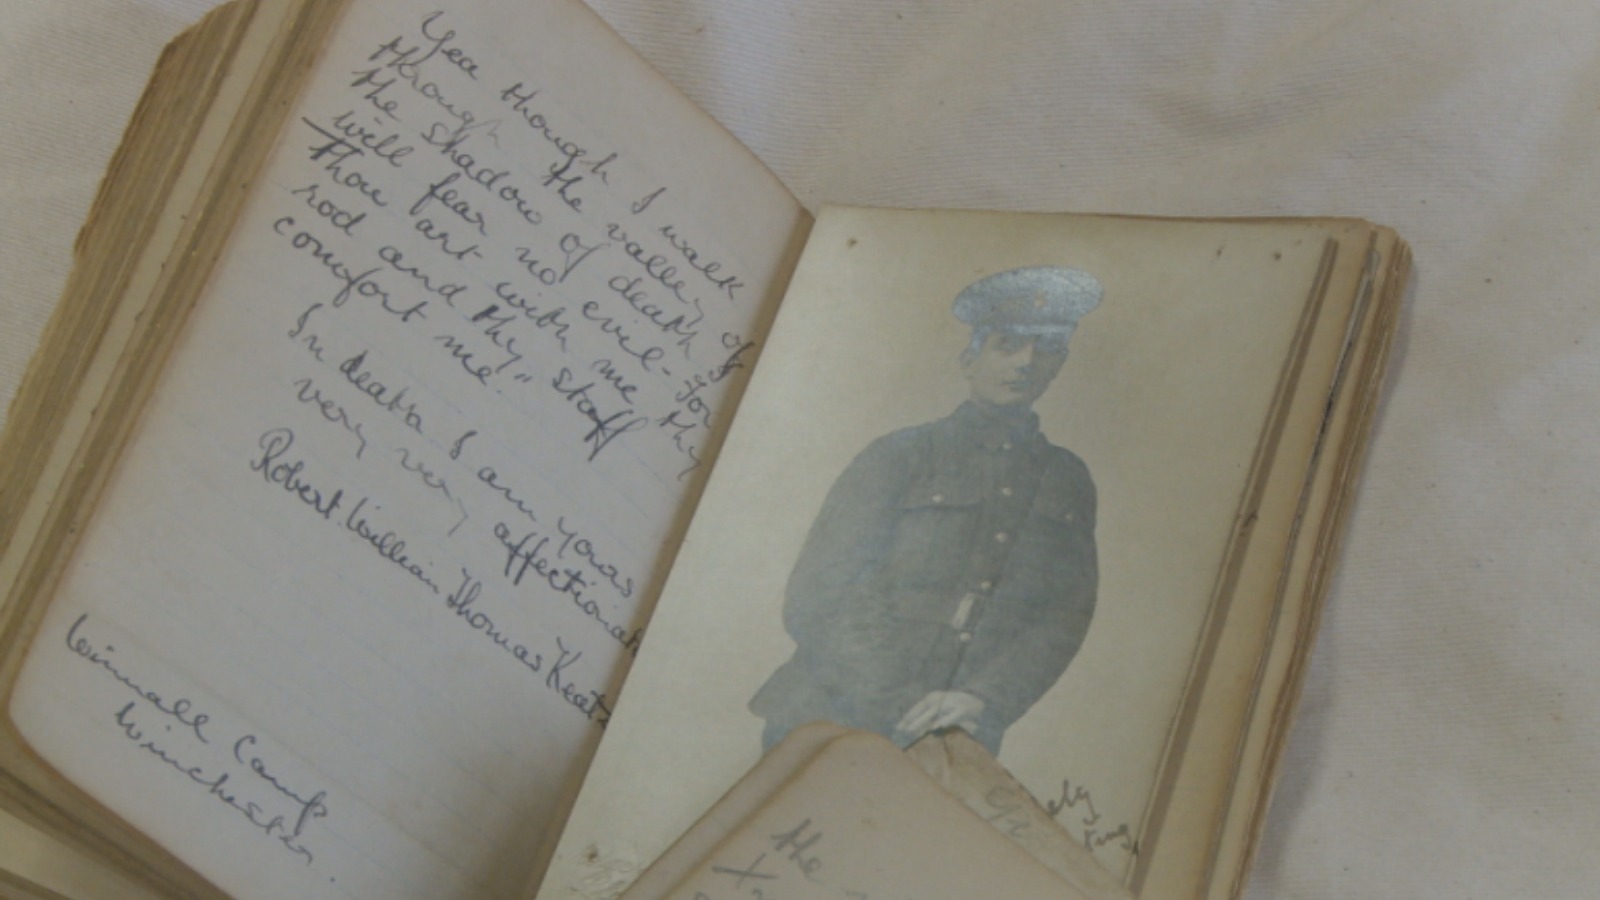 Yea though I walk
through the valley of
the shadow of death I
will fear no evil - for
Thou art with me thy
rod and thy staff
comfort me."
In death I am yours
very very affectionate
Robert William Thomas Keat
Winnall Camp
Winchester.
the